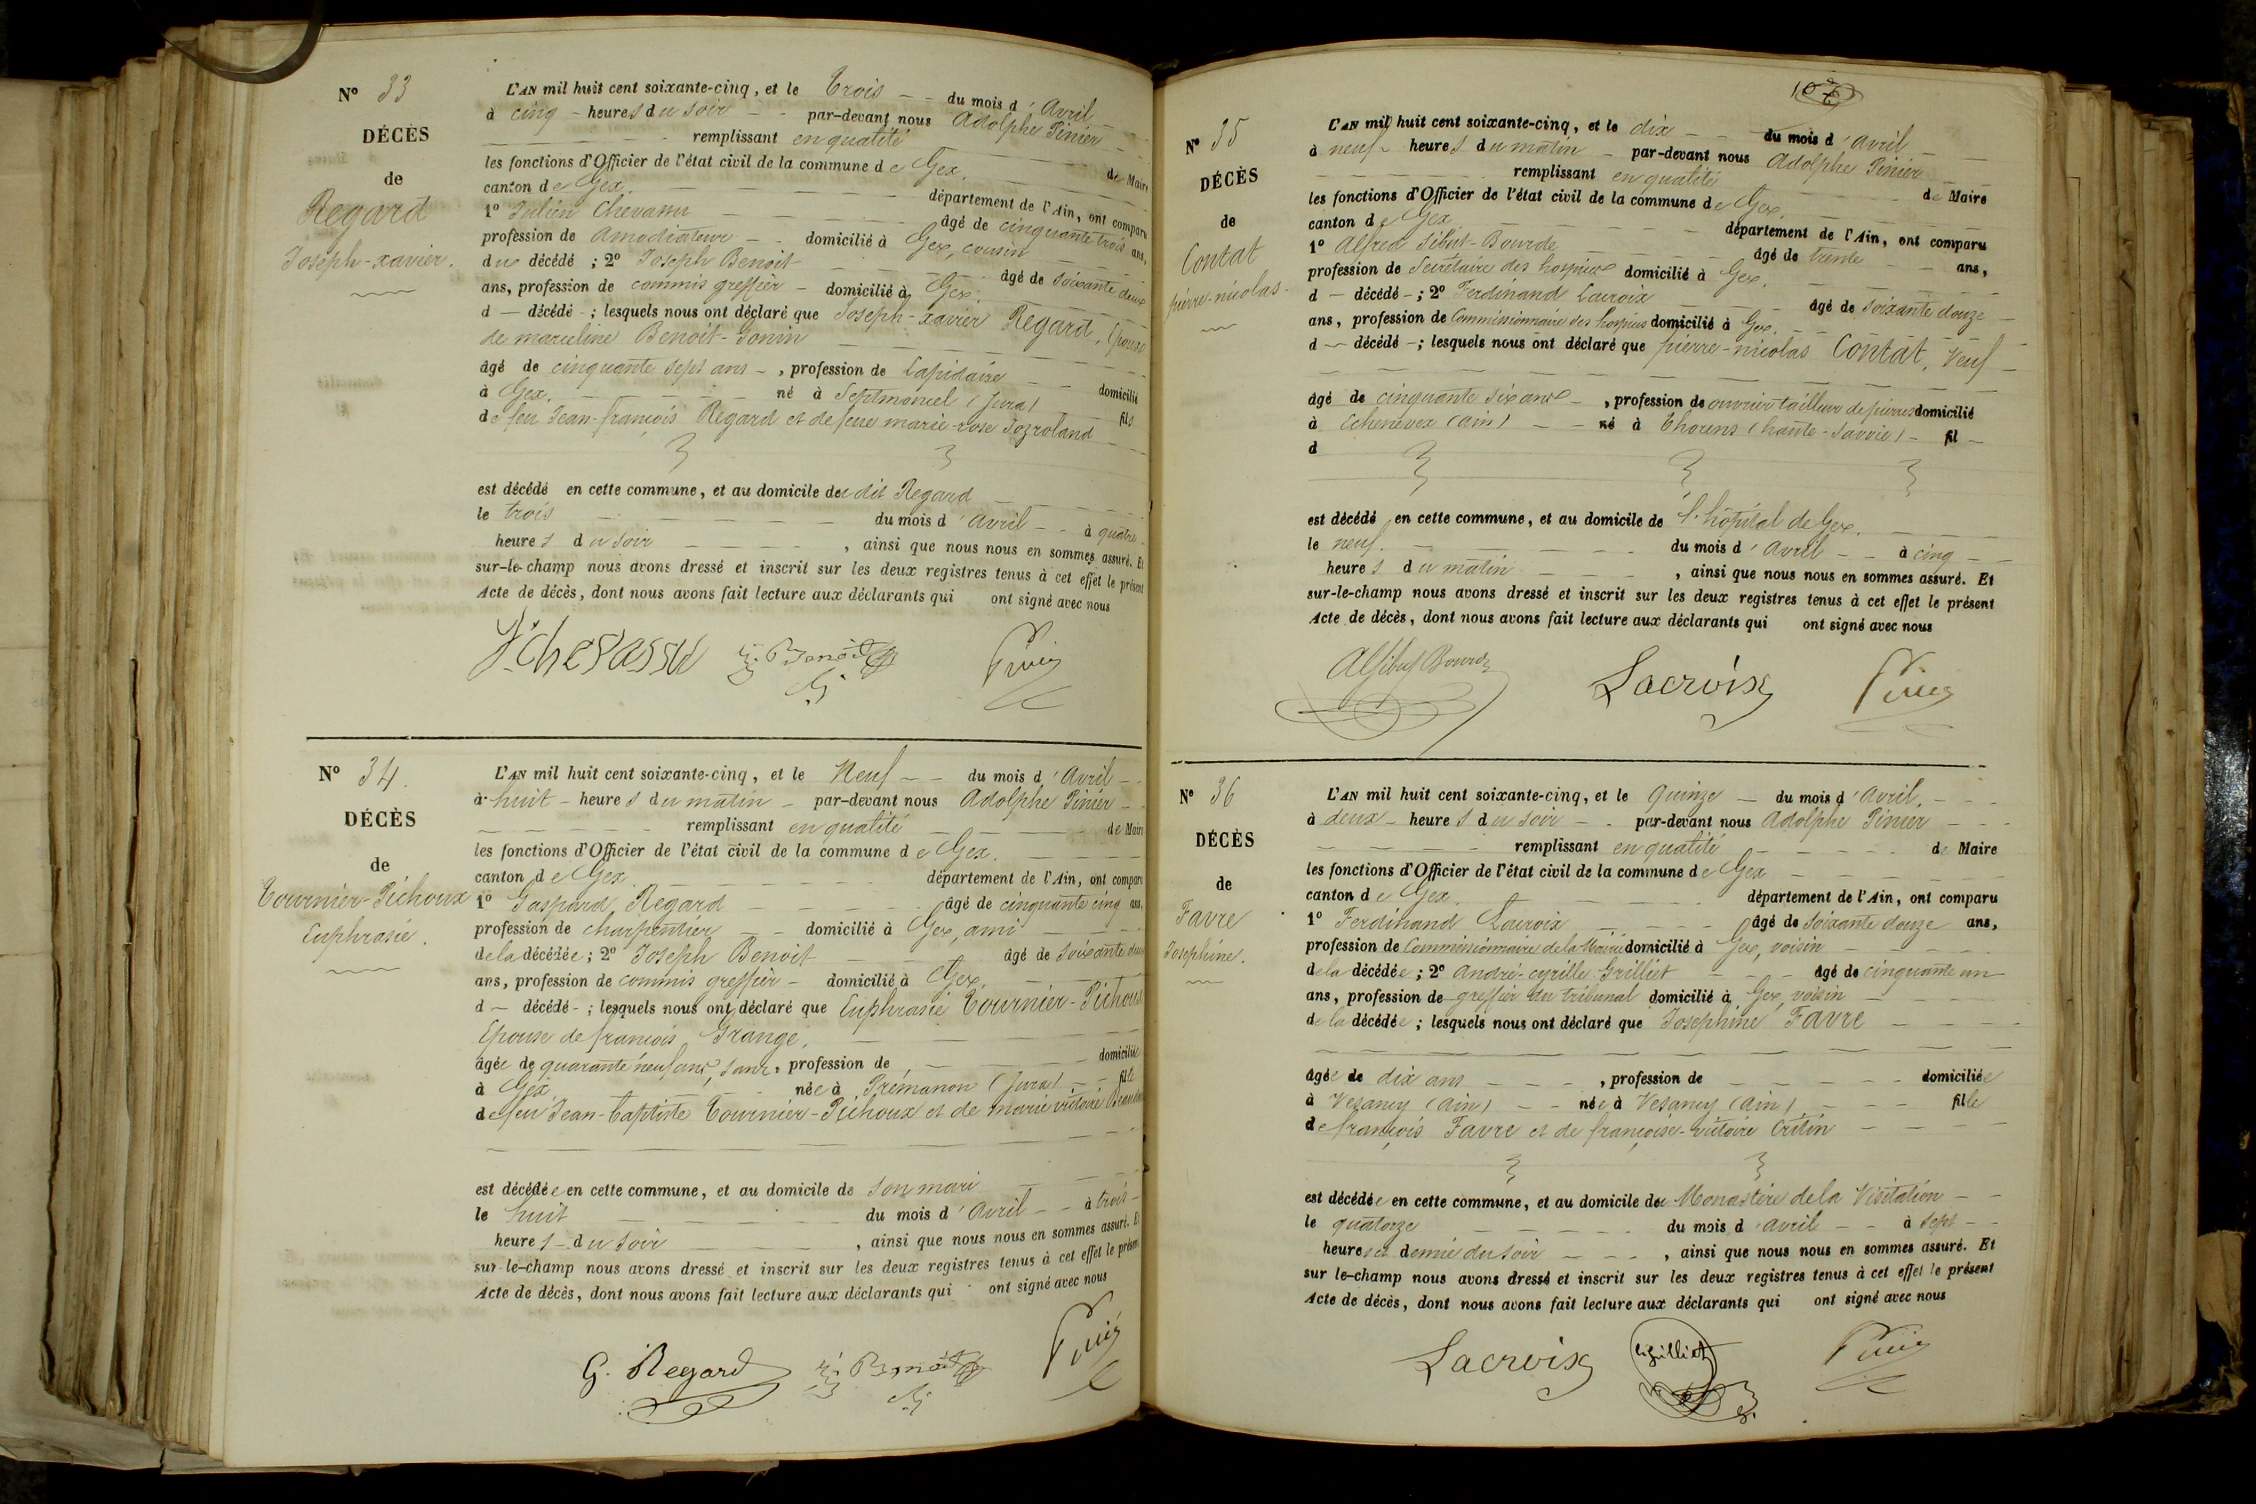 N° 33
DÉCÈS
de
Regard
Joseph-xavier.
L'AN mil huit cent soixante-cinq, et le Trois — — du mois d'Avril —
à cinq — heures du soir — — par-devant nous Adolphe Pinier — —
— — — remplissant en qualité — — — de Maire
les fonctions d'Officier de l'état civil de la commune de Gex. — — —
canton de Gex. — — — — département de l'Ain, ont comparu
1° Julien Chevassu — — — — âgé de cinquante trois ans,
profession de Amodiateur — — domicilié à Gex, cousin — —
du décédé ; 2° Joseph Benoit — — — — âgé de soixante deux
ans, profession de commis greffier — domicilié à Gex. — —
d — décédé — ; lesquels nous ont déclaré que Joseph-xavier Regard, Epoux
de marceline Benoit-Gonin — — — —
âgé de cinquante sept ans —, profession de Lapidaire — — domicilié
à Gex. — — — — né à Septmoncel (Jura) — — fils
de feu Jean-françois Regard et de feue marie-rose Tozroland —
est décédé en cette commune, et au domicile du dit Regard — —
le trois — — — — du mois d'Avril — — à quatre
heures du soir — — — —, ainsi que nous nous en sommes assuré. Et
sur-le-champ nous avons dressé et inscrit sur les deux registres tenus à cet effet le présent
Acte de décès, dont nous avons fait lecture aux déclarants qui ont signé avec nous
J. Chevassu J. Benoit Pinier
N° 34.
DÉCÈS
de
Tournier-Pichoux
Euphrasie.
L'AN mil huit cent soixante-cinq, et le Neuf — — du mois d'Avril —
à huit — heures du matin — par-devant nous Adolphe Pinier —
— — — remplissant en qualité — — — de Maire
les fonctions d'Officier de l'état civil de la commune de Gex. — — —
canton de Gex — — — — département de l'Ain, ont comparu
1° Gaspard Regard — — — — âgé de cinquante cinq ans,
profession de charpentier — — domicilié à Gex, ami — —
de la décédée ; 2° Joseph Benoit — — âgé de soixante deux
ans, profession de commis greffier — domicilié à Gex. — —
d — décédé — ; lesquels nous ont déclaré que Euphrasie Tournier-Pichoux
Epouse de françois Grange. — — —
âgée de quarante neuf ans, sans, profession de — — — domiciliée
à Gex — — — — née à Prémanon (Jura) — — fille
de feu Jean-Baptiste Tournier-Pichoux et de marie victoire
est décédée en cette commune, et au domicile de son mari — —
le huit — — — — du mois d'Avril — — à trois —
heures — du soir — — — —, ainsi que nous nous en sommes assuré. Et
sur-le-champ nous avons dressé et inscrit sur les deux registres tenus à cet effet le présent
Acte de décès, dont nous avons fait lecture aux déclarants qui ont signé avec nous
G. Regard J. Benoit Pinier
N° 35
DÉCÈS
de
Contat
pierre-nicolas.
L'AN mil huit cent soixante-cinq, et le dix — — du mois d'Avril —
à neuf — heures du matin — par-devant nous Adolphe Pinier
— — — remplissant en qualité — — — de Maire
les fonctions d'Officier de l'état civil de la commune de Gex. — — —
canton de Gex — — — — département de l'Ain, ont comparu
1° Alfred Sibut-Bourde — — — — âgé de trente — — ans,
profession de Secrétaire des hospices domicilié à Gex. — — —
d — décédé — ; 2° Ferdinand Lacroix — — âgé de soixante douze —
ans, profession de Commissionnaire des hospices domicilié à Gex. — —
d — décédé — ; lesquels nous ont déclaré que pierre-nicolas Contat, Veuf —
âgé de cinquante six ans —, profession de ouvrier tailleur de pierres domicilié
à Echenevex (ain) — — né à Thorens (haute-Savoie) — fil —
d
est décédé en cette commune, et au domicile de l'hôpital de Gex. — —
le neuf. — — — — du mois d'Avril — — à cinq —
heures du matin — — — —, ainsi que nous nous en sommes assuré. Et
sur-le-champ nous avons dressé et inscrit sur les deux registres tenus à cet effet le présent
Acte de décès, dont nous avons fait lecture aux déclarants qui ont signé avec nous
A Sibut Bourde Lacroix Pinier
N° 36
DÉCÈS
de
Favre
Josephine.
L'AN mil huit cent soixante-cinq, et le Quinze — du mois d'Avril. — —
à deux — heures du soir — — par-devant nous Adolphe Pinier — —
— — — remplissant en qualité — — — de Maire
les fonctions d'Officier de l'état civil de la commune de Gex — — —
canton de Gex. — — — — département de l'Ain, ont comparu
1° Ferdinand Lacroix — — — — âgé de soixante douze ans,
profession de Commissionnaire de la Mairie domicilié à Gex, voisin — —
de la décédée ; 2° André-cyrille Grilliet — — — âgé de cinquante un —
ans, profession de greffier du tribunal domicilié à Gex, voisin — —
de la décédée ; lesquels nous ont déclaré que Josephine Favre — — —
âgée de dix ans — — — —, profession de — — — — domiciliée
à Vesancy (ain) — — née à Vesancy (ain) — — — fille
de françois Favre et de françoise-victoire Critin — — —
est décédée en cette commune, et au domicile du Monastère de la Visitation — —
le quatorze — — — — du mois d'avril — — à sept — —
heures et demie du soir — — —, ainsi que nous nous en sommes assuré. Et
sur le-champ nous avons dressé et inscrit sur les deux registres tenus à cet effet le présent
Acte de décès, dont nous avons fait lecture aux déclarants qui ont signé avec nous
Lacroix Grilliet Pinier